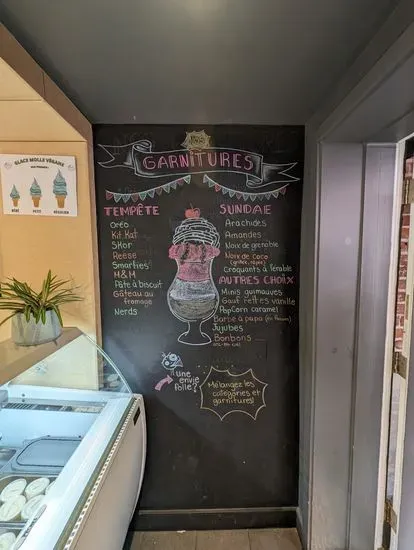 GLACE MOLLE VÉGANE
BÉBÉ
PETIT
RÉGULIER
GARNITURES
TEMPÊTE
Oréo
Kit Kat
Skor
Reese
Smarties
M&M
Pâte à biscuit
Gâteau au
fromage
Nerds
SUNDAE
Arachides
Amandes
Noix de grenoble
Noix de Coco
(grillée, râpée)
Croquants à l'érable
AUTRES CHOIX
Minis guimauves
Gaufrettes vanille
PopCorn caramel
Barbe à papa
Jujubes
Bonbons
une
envie
folle?
Mélangez les
catégories et
garnitures!